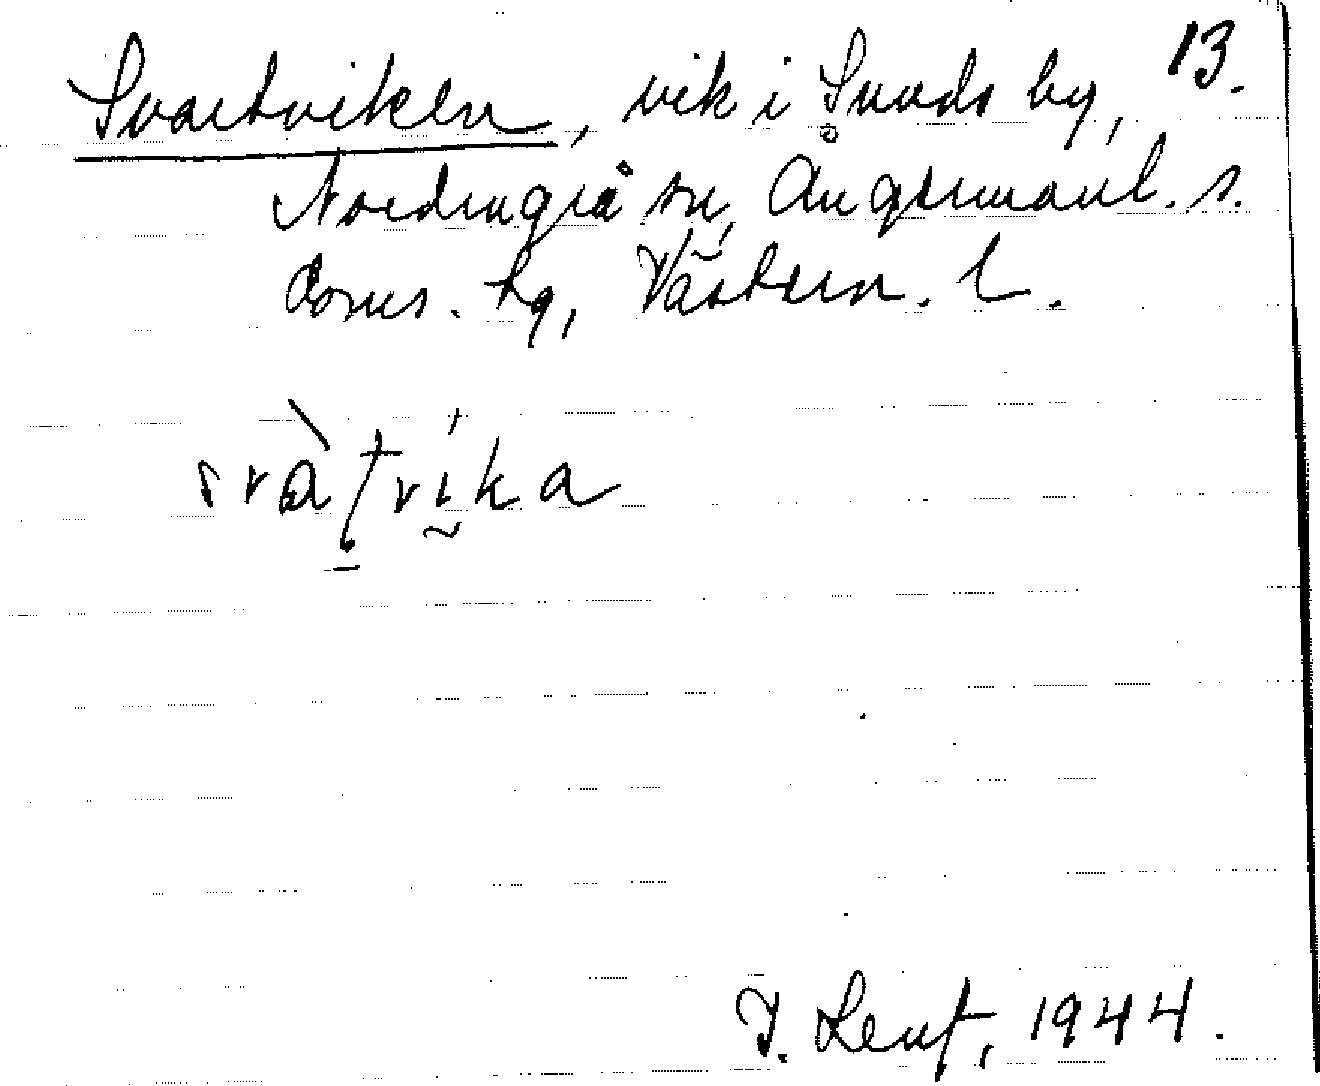 Svartviken, vik i Sunds by, 13.
Nordingrå sn, Ångermanl. s.
doms. hg, Västern. l.
svàṭvíka
J. Leuf, 1944.